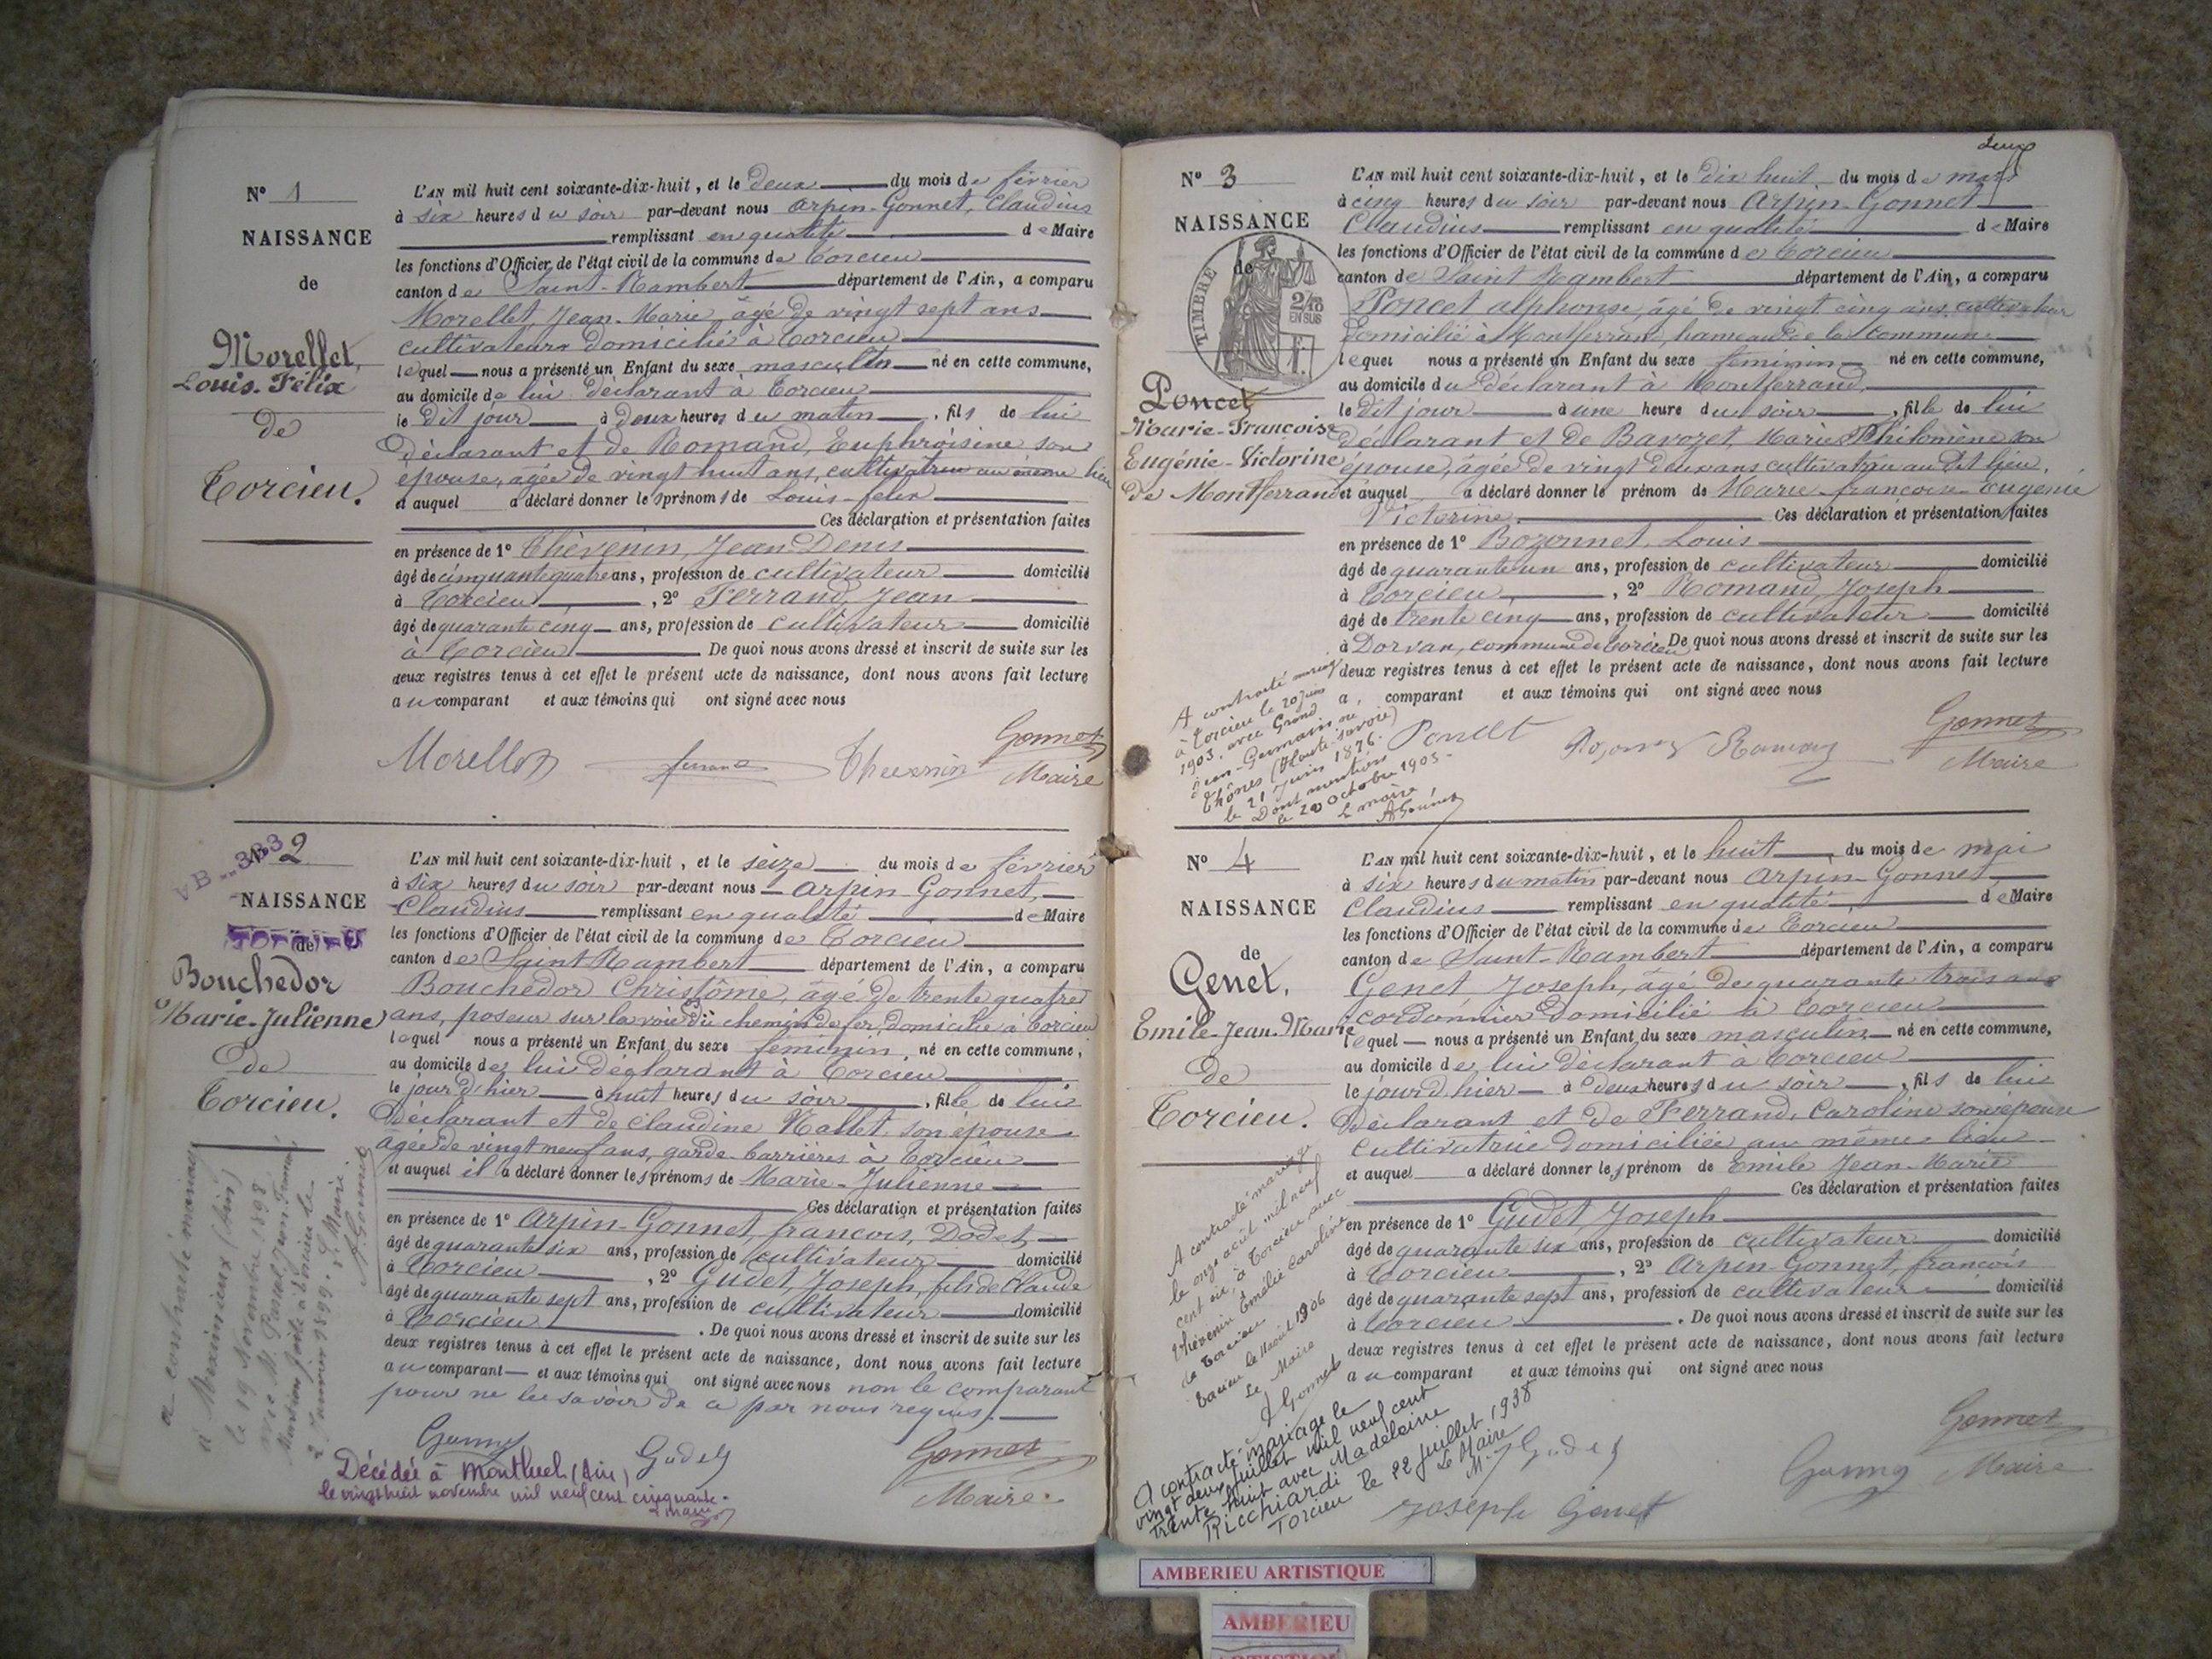 N° 1
NAISSANCE
de
Morellet,
Louis-Félix
de
Torcieu.
L'AN mil huit cent soixante-dix-huit, et le deux du mois de février
à six heures du soir par-devant nous Arpin-Gonnet, Claudius
remplissant en qualité de Maire
les fonctions d'Officier de l'état civil de la commune de Torcieu
canton de Saint-Rambert département de l'Ain, a comparu
Morellet, Jean-Marie, âgé de vingt sept ans
cultivateur domicilié à Torcieu
lequel nous a présenté un Enfant du sexe masculin né en cette commune,
au domicile de lui déclarant à Torcieu
le dit jour à deux heures du matin, fils de lui
déclarant et de Romand, Euphroisine son
épouse, âgée de vingt huit ans, cultivatrice au même lieu
et auquel a déclaré donner les prénoms de Louis-felix
Ces déclaration et présentation faites
en présence de 1° Thévenin, Jean Denis
âgé de cinquante quatre ans, profession de cultivateur domicilié
à Torcieu, 2° Ferrand, Jean
âgé de quarante cinq ans, profession de cultivateur domicilié
à Torcieu De quoi nous avons dressé et inscrit de suite sur les
deux registres tenus à cet effet le présent acte de naissance, dont nous avons fait lecture
au comparant et aux témoins qui ont signé avec nous
Morellet ferrand Thevenin Gonnet
Maire
VB..333
N° 2
NAISSANCE
de
Bouchedor
Marie-Julienne
de
Torcieu.
L'AN mil huit cent soixante-dix-huit, et le seize du mois de février
à six heures du soir par-devant nous Arpin Gonnet,
Claudius remplissant en qualité de Maire
les fonctions d'Officier de l'état civil de la commune de Torcieu
canton de Saint Rambert département de l'Ain, a comparu
Bouchedor Christôme, âgé de trente quatre
ans, poseur sur la voie du chemin de fer, domicilié à Torcieu
lequel nous a présenté un Enfant du sexe féminin, né en cette commune,
au domicile de lui déclarant à Torcieu
le jour d'hier à huit heures du soir, fille de lui
déclarant et de Claudine Mallet son épouse
âgée de vingt neuf ans, garde-barrières à Torcieu
et auquel il a déclaré donner les prénoms de Marie-Julienne
Ces déclaration et présentation faites
en présence de 1° Arpin-Gonnet, francois, Dodet,
âgé de quarante six ans, profession de cultivateur domicilié
à Torcieu, 2° Gudet, Joseph, fils de Claude
âgé de quarante sept ans, profession de cultivateur domicilié
à Torcieu. De quoi nous avons dressé et inscrit de suite sur les
deux registres tenus à cet effet le présent acte de naissance, dont nous avons fait lecture
au comparant et aux témoins qui ont signé avec nous non le comparant
pour ne le savoir de ce par nous requis.
Gonnet Gudet Gonnet
Maire
a contracté mariage
à Meximieux (Ain)
le 19 Novembre 1898
avec M. Pascal Jean
Mention faite à Torcieu le
2 Janvier 1899.
Le Maire
A Gonnet
Décédée à Montluel (Ain)
le vingt huit novembre mil neuf cent cinquante.
deux
N° 3
NAISSANCE
de
TIMBRE
2/10
EN SUS
Poncet
Marie-Françoise
Eugénie-Victorine
de Montferrand
L'AN mil huit cent soixante-dix-huit, et le dix huit du mois de mars
à cinq heures du soir par-devant nous Arpin-Gonnet
Claudius remplissant en qualité de Maire
les fonctions d'Officier de l'état civil de la commune de Torcieu
canton de Saint Rambert département de l'Ain, a comparu
Poncet alphonse, âgé de vingt cinq ans, cultivateur
domicilié à Montferrand, hameau de la commune
lequel nous a présenté un Enfant du sexe féminin né en cette commune,
au domicile du déclarant à Montferrand
le dit jour à une heure du soir, fille de lui
déclarant et de Bavozet, Marie Philomène son
épouse, âgée de vingt deux ans cultivatrice au dit lieu,
et auquel a déclaré donner le prénom de Marie-françoise-Eugénie
Victorine. Ces déclaration et présentation faites
en présence de 1° Bozonnet, Louis
âgé de quarante un ans, profession de cultivateur domicilié
à Torcieu, 2° Romand, Joseph
âgé de trente cinq ans, profession de cultivateur domicilié
à Dorvan, commune de Torcieu De quoi nous avons dressé et inscrit de suite sur les
deux registres tenus à cet effet le présent acte de naissance, dont nous avons fait lecture
a, comparant et aux témoins qui ont signé avec nous
Poncet Romand Gonnet
Maire
A contracté mariage
à Torcieu le 20 Juin
1903. avec Grand
Jean-Germain né
Thônes (Haute-Savoie)
le 21 Juin 1876.
Dont mention
le 20 Octobre 1903.
Le maire,
A Gonnet
N° 4
NAISSANCE
de
Genet,
Emile-Jean-Marie
de
Torcieu.
L'AN mil huit cent soixante-dix-huit, et le huit du mois de mai
à six heures du matin par-devant nous Arpin-Gonnet
Claudius remplissant en qualité de Maire
les fonctions d'Officier de l'état civil de la commune de Torcieu
canton de Saint-Rambert département de l'Ain, a comparu
Genet Joseph, âgé de quarante trois ans
cordonnier domicilié à Torcieu
lequel nous a présenté un Enfant du sexe masculin né en cette commune,
au domicile de lui déclarant à Torcieu
le jour d'hier à deux heures du soir, fils de lui
déclarant et de Ferrand, Caroline son épouse
Cultivatrice domiciliée au même lieu
et auquel a déclaré donner les prénom de Emile Jean-Marie
Ces déclaration et présentation faites
en présence de 1° Gudet Joseph
âgé de quarante six ans, profession de cultivateur domicilié
à Torcieu, 2° Arpin-Gonnet, francois
âgé de quarante sept ans, profession de cultivateur domicilié
à Torcieu. De quoi nous avons dressé et inscrit de suite sur les
deux registres tenus à cet effet le présent acte de naissance, dont nous avons fait lecture
au comparant et aux témoins qui ont signé avec nous
Gudet Gonnet Gonnet
Maire
Joseph Genet
A contracté mariage
le onze août mil neuf
cent six, à Torcieu avec
Thévenin Emélie Caroline
de Torcieu
Torcieu le 11 août 1906
Le Maire
A Gonnet
A contracté mariage le
vingt deux Juillet mil neuf cent
trente huit avec Madeleine
Ricchiardi
Torcieu le 22 Juillet 1938
Le Maire
AMBERIEU ARTISTIQUE
AMBERIEU
ARTISTIQUE